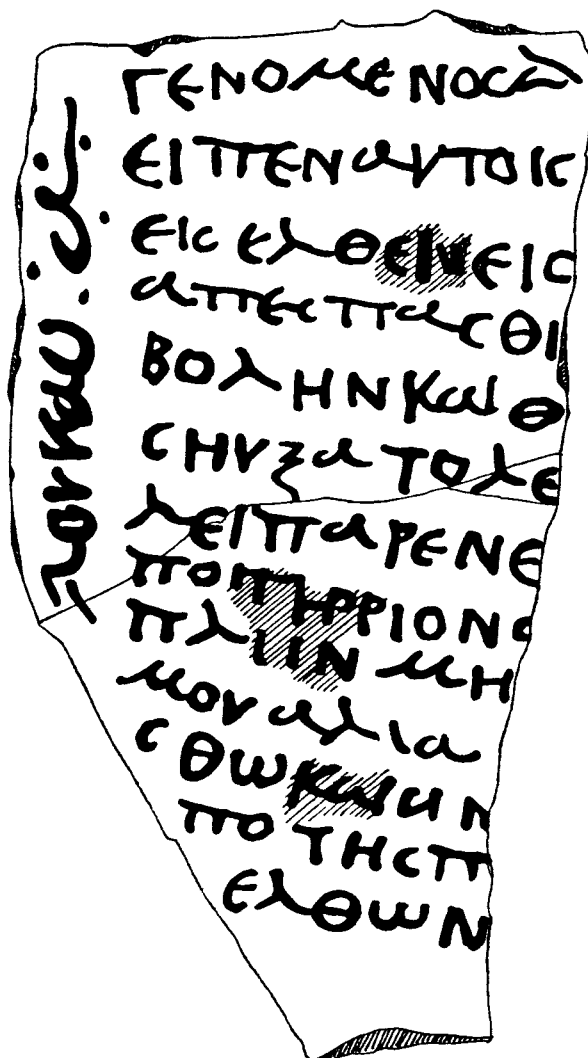 ΓΕΝΟΜΕΝΟCΔ
ΕΙΠΕΝΑΥΤΟΙC
ΕΙCΕΛΘΕΙΝΕΙC
ΑΠΕCΠΑCΘΙ
ΒΟΛΗΝΚΑΙΘ
CΗΥΞΑΤΟΛΕ
ΛΕΙΠΑΡΕΝΕ
ΠΟΤΗΡΡΙΟΝC
ΠΛΙΙΝΜΗ
ΜΟΥΑΛΙΑ
CΘΩΚΑΙΑΝ
ΠΟΤΗCΠ
ΕΛΘΩΝ
ΛΟΥΚΑΥ